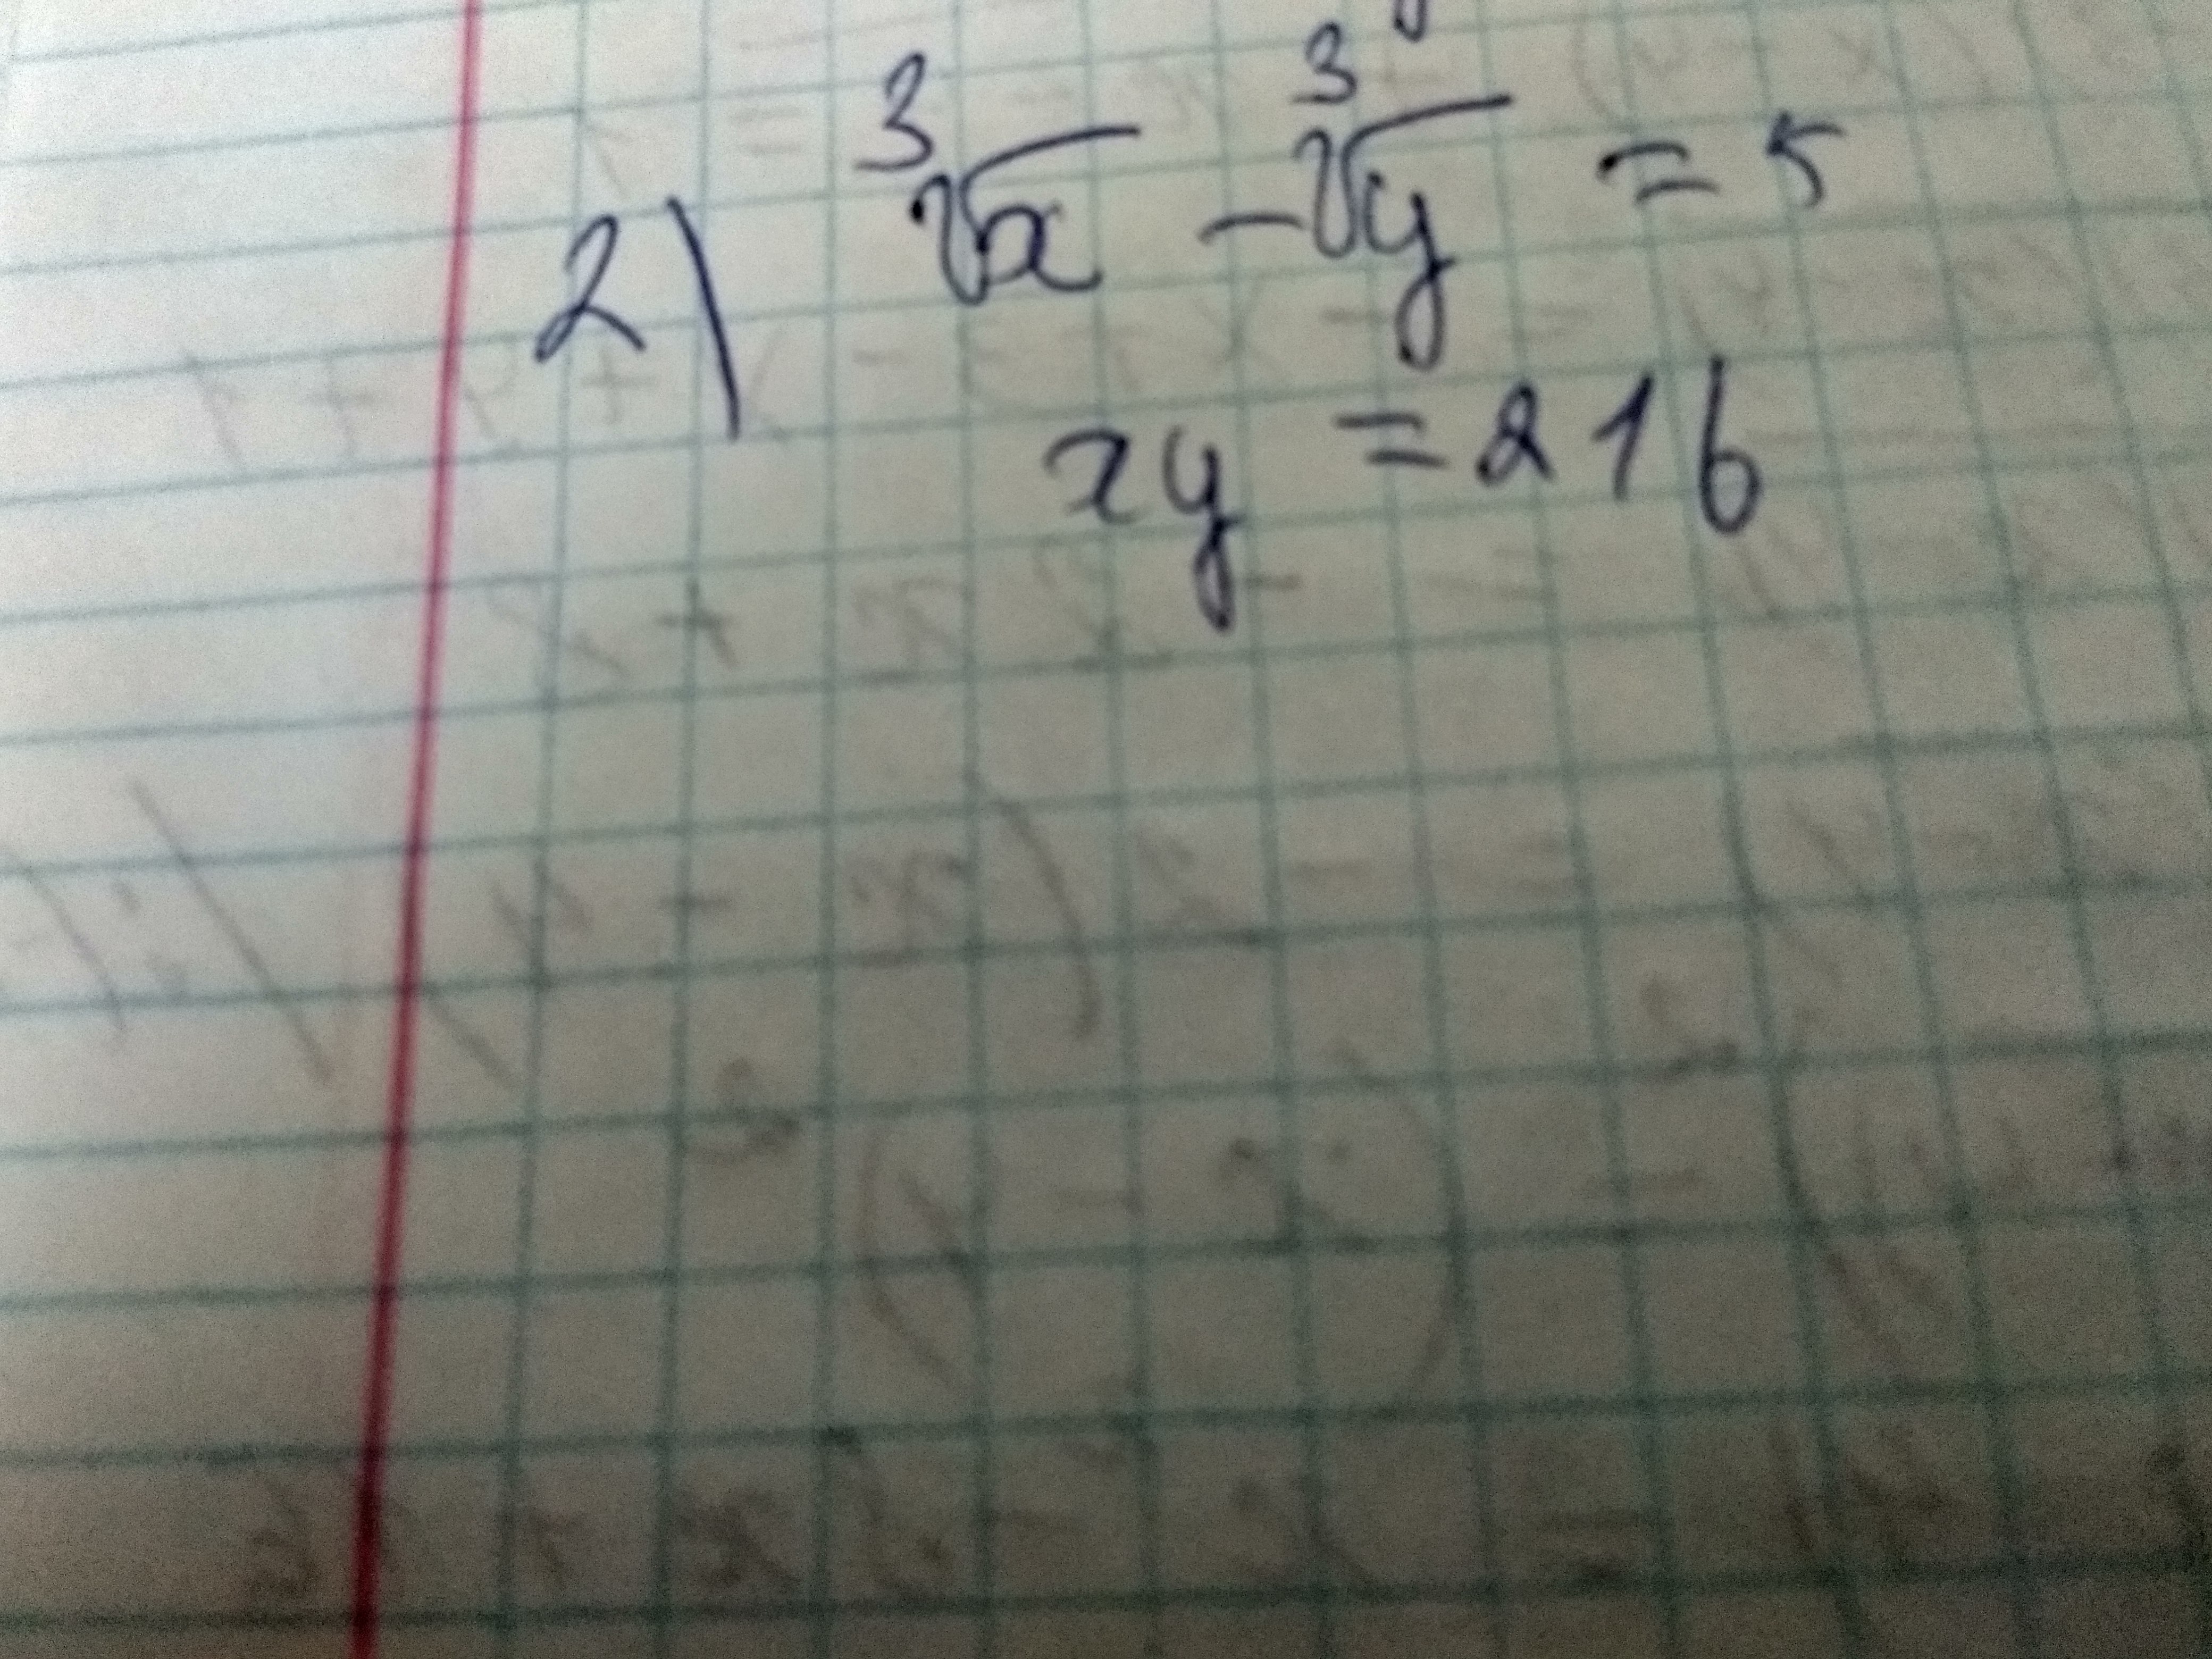 2) ∛x − ∛y = 5
xy = 216